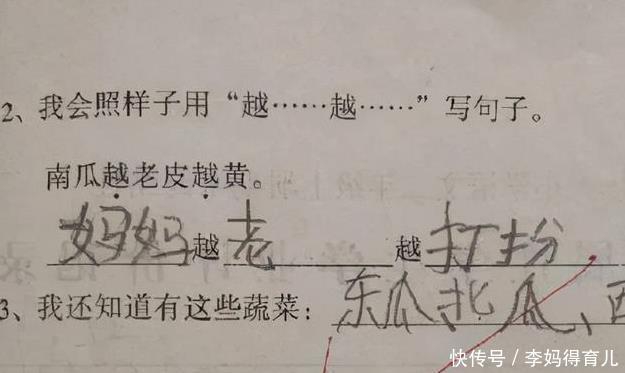 2、我会照样子用“越……越……”写句子。
南瓜越老皮越黄。
妈妈越老越打扮
3、我还知道有这些蔬菜：东瓜、北瓜、西
快传号／李妈得育儿